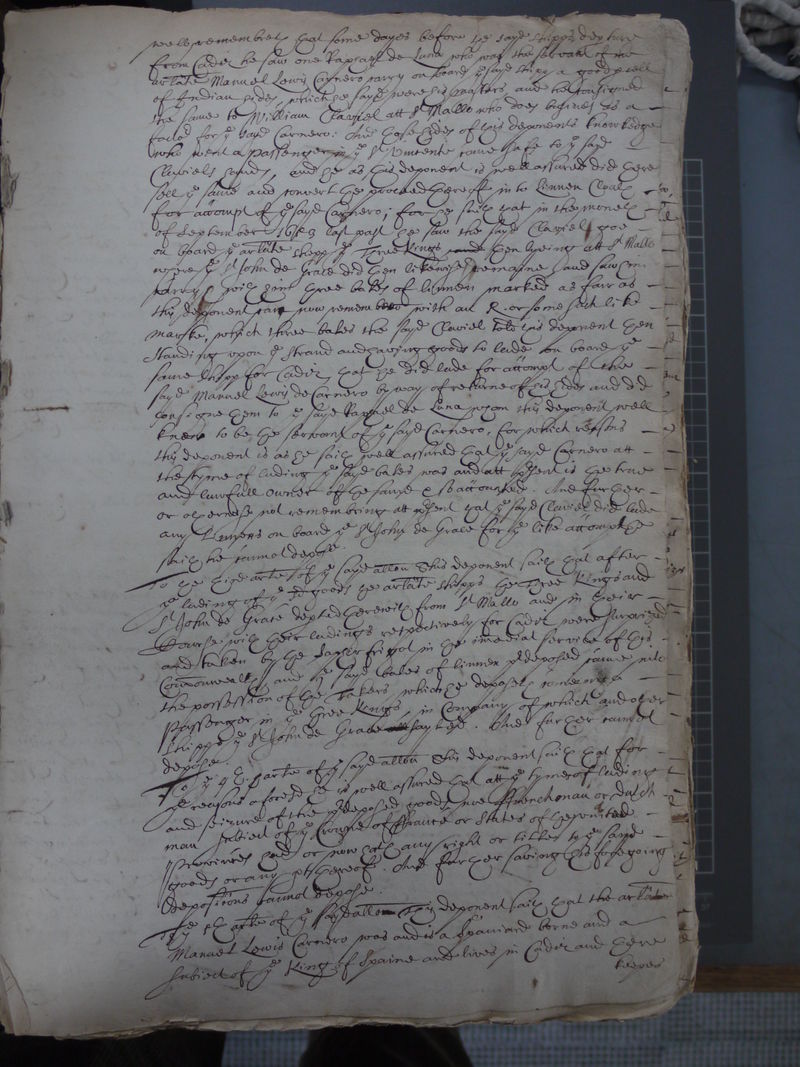 well remembreth that some dayes before the sayd shipps depture
from Cadiz he saw one Raphael de Luna who was the servant of the
arlate Manuel Lewis Carnero carry on board ye sayd shipp a good parcell
of Indian hides, which he sayd were his masters, and he consigned
the same to William Clawiel att St Mallo who does busines as a
factor for ye sayd Carnero: And those hides of this deponents knowledge
who went a passenger in ye St Vincente came safe to ye sayd
Clawiels hand, and he as this deponent is well assured did there
sell ye same and convert the proceed thereof in to linnen Cloath
for accompt of ye sayd Carnero; for he saith that in the moneth
of September 1652 last past he saw the sayd Clawiel goe
on board ye arlate shipp ye Three Kings then lyeing att St Mallo
where ye St John de Grace did then likewise remaine, and saw him
carry with him three bales of linnen marked as farr as
this deponent can now remember with an R. or some such like
marke, which three bales the sayd Clawiel told this deponent then
standing upon ye strand and having goods to lade on board ye
same shipp for Cadiz that he did lade for accompt of the
sayd Manuel Lewis de Carnero by way of returne of his hides and did
consigne them to ye sayd Raphael de Luna whom this deponent well
knew to be the servant of ye sayd Carnero, for which reasons
this deponent is as he saith well assured that ye sayd Carnero att
the tyme of lading ye sayd bales was and att psent is the true
and lawfull owner of the same & so accounted. And further
or otherwise not remembring at psent that ye sayd Clawiel did lade
any linnens on board ye St John de Grace for ye like accompt he
saith he cannot depose.
To the third arle of ye sayd allon This deponent saith that after
ye lading of ye sd goods the arlate shipps the Three Kings and
St John de Grace depted therewith from St Mallo and in their
Course with their ladings respectively for Cadiz were surprized
and taken by the in the imediat service of this
Commonwealth, and ye sayd bales of linnen pdeposed came into
the possession of the Takers which he deposeth who went a
Passenger in ye Three Kings, in Company of which and other
shipps ye St John de Grace sayled. And further cannot
depose.
To ye 4th arle of ye sayd allon This deponent saith that for
ye reasons aforesd he is well assured that att ye tyme of lading
and seizure of the pdeposed goods, noe Frenchman or dutch
man subiect of ye Crowne of France or States of the united
Provinces had or now hath any right or titles to ye sayd
goods or any pt thereof. And further saving his foregoing
depositions cannot depose.
To ye 5th arle of ye sayd allon This deponent saith that the arlate
Manuel Lewis Carnero was and is a Spaniard borne and a
subiect of ye King of Spaine and lives in Cadiz and there
keepes